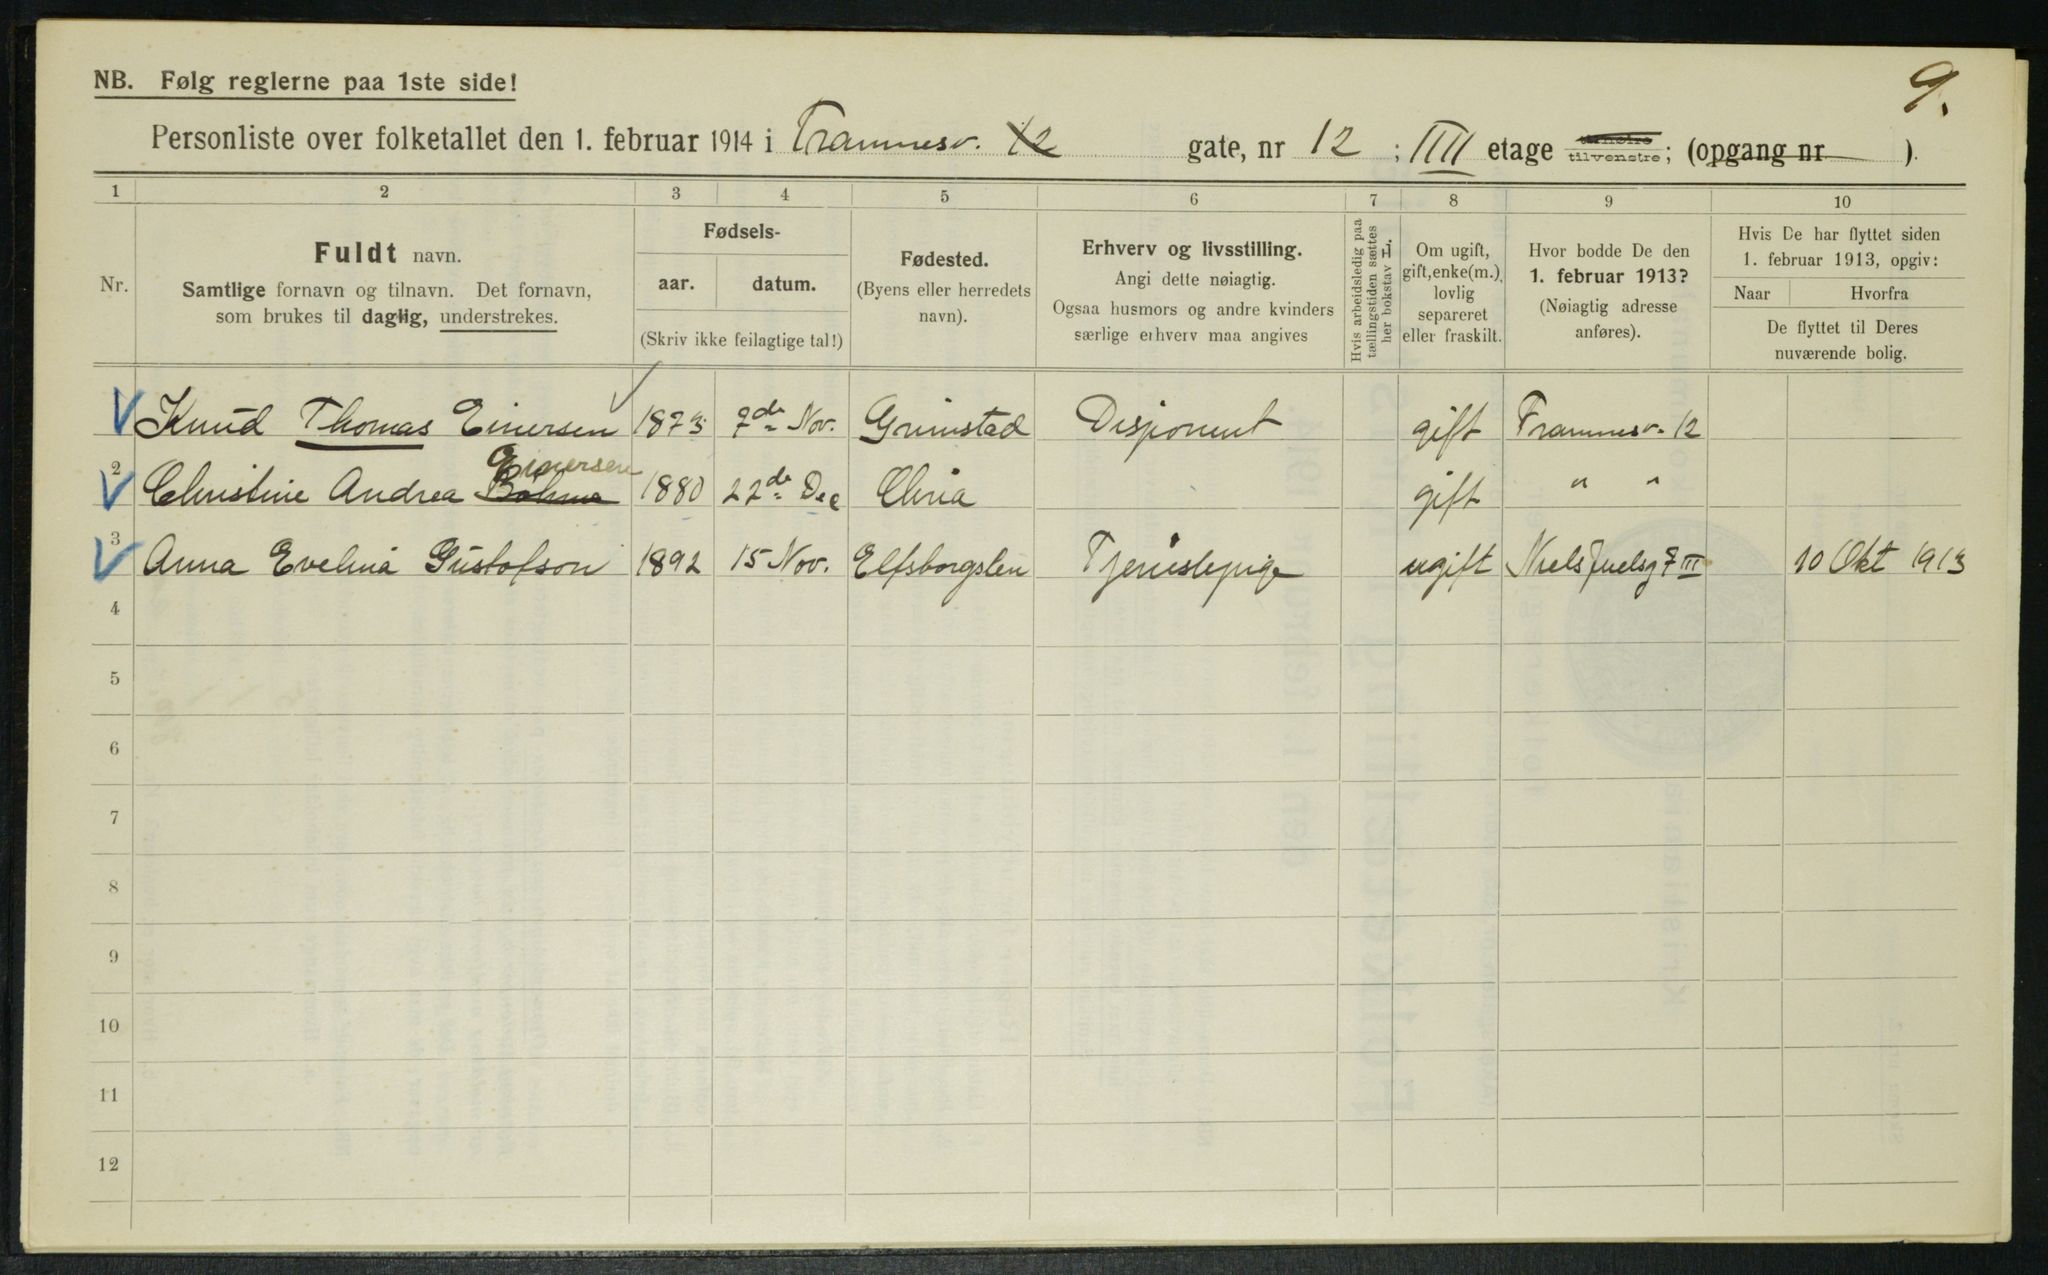 9.
NB. Følg reglerne paa 1ste side!
Personliste over folketallet den 1. februar 1914 i Framnesv. 12 gate, nr 12 ; IIII etage tilhøire tilvenstre; (opgang nr ).
1 2 3 4 5 6 7 8 9 10
Nr.
Fuldt navn.
Samtlige fornavn og tilnavn. Det fornavn,
som brukes til daglig, understrekes.
Fødsels-
aar. datum.
(Skriv ikke feilagtige tal!)
Fødested.
(Byens eller herredets
navn).
Erhverv og livsstilling.
Angi dette nøiagtig.
Ogsaa husmors og andre kvinders
særlige erhverv maa angives
Hvis arbeidsledig paa
tællingstiden sættes
her bokstav L.
Om ugift,
gift, enke(m.),
lovlig
separeret
eller fraskilt.
Hvor bodde De den
1. februar 1913?
(Nøiagtig adresse
anføres).
Hvis De har flyttet siden
1. februar 1913, opgiv:
Naar Hvorfra
De flyttet til Deres
nuværende bolig.
Knud Thomas Einersen 1873 7de Nov. Grimstad Disponent gift Framnesv. 12
Einersen
2 Christine Andrea Bøhme 1880 22de Dec Chria gift " "
3 Anna Evelina Gustofson 1892 15 Nov. Elfsborgslen Tjenistepige ugift Niels Juelsg 7 III 10 Okt 1913
4
5
6
7
8
9
10
11
12